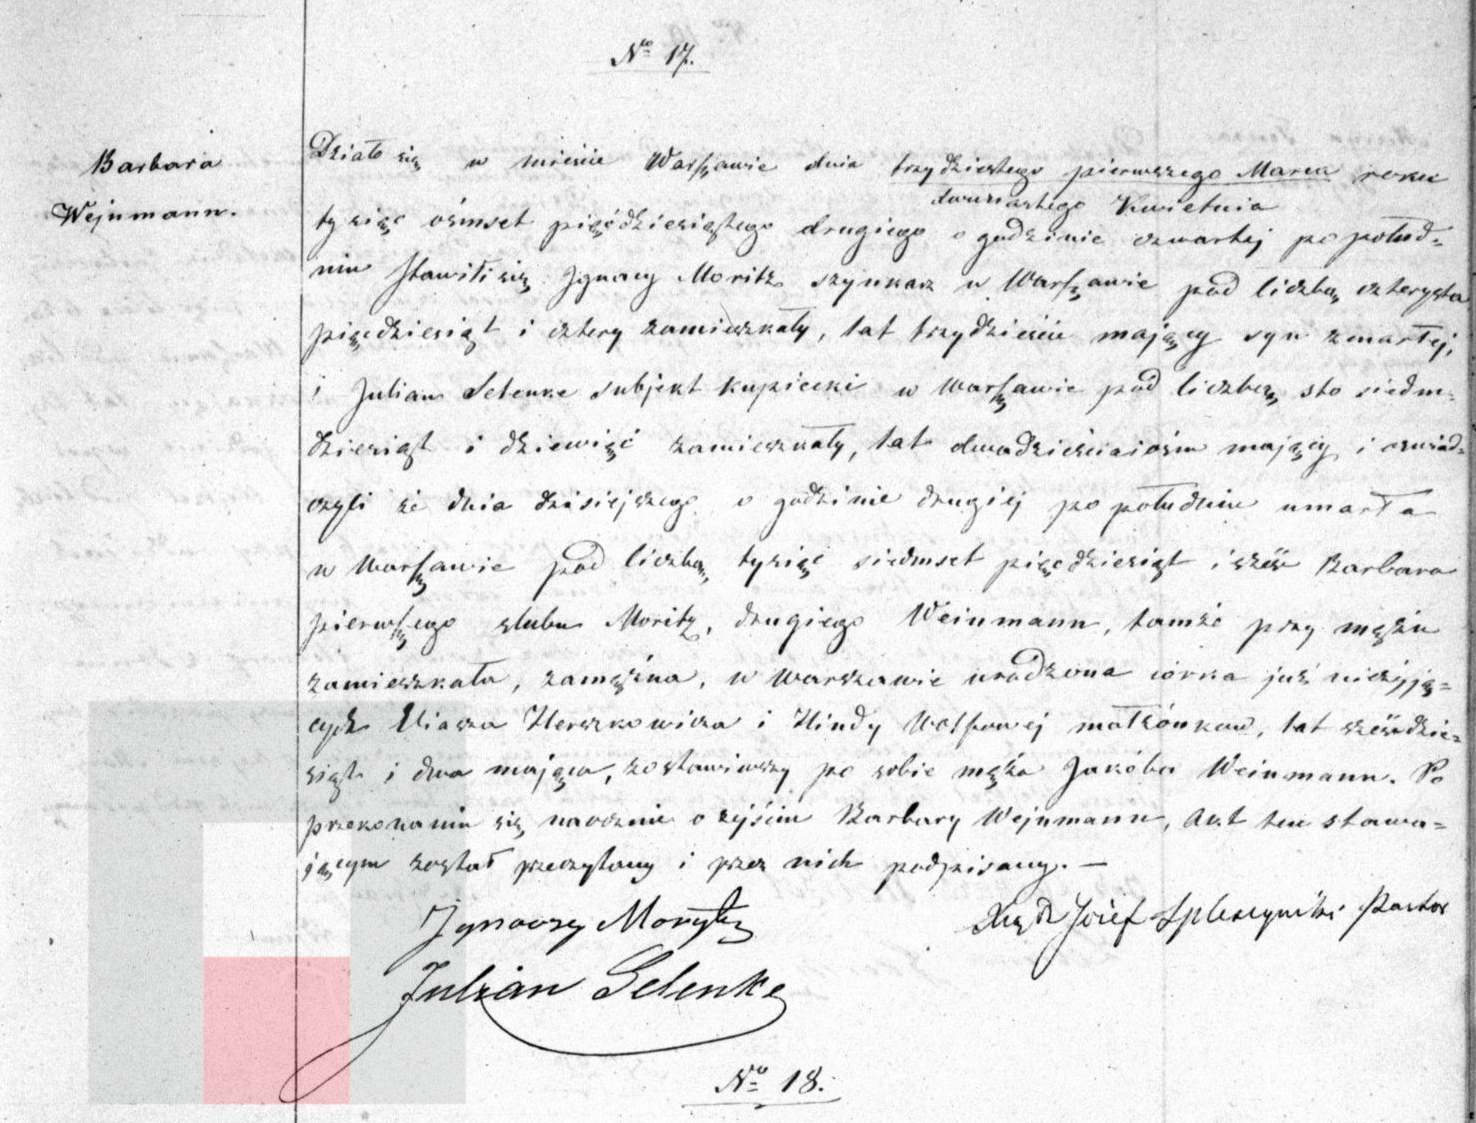 No 17.
Barbara
Wejnmann.
Działo się w mieście Warszawie dnia trzydziestego pierwszego Marca roku
dwunastego Kwietnia
tysiąc ośmset pięćdziesiątego drugiego o godzinie czwartej po połud=
niu stawili się Ignacy Moritz szynkarz w Warszawie pod liczbą czterysta
pięcdziesiąt i cztery zamieszkały, lat trzydzieście mający syn zmarłej,
i Julian Selenke subjekt kupiecki w Warszawie pod liczbą sto siedm=
dziesiąt i dziewięć zamieszkały, lat dwadzieściaiośm mający, i oświad=
czyli że dnia dzisiejszego o godzinie drugiej po południu umarła
w Warszawie pod liczbą tysiąc siedmset pięcdziesiąt i sześć Barbara
pierwszego slubu Moritz, drugiego Weinmann, tamże przy mężu
zamieszkała, zamężna, w Warszawie urodzona córka już nieżyją=
cych Eliasza Herszkowicza i Hindy Wolfowej małżonków, lat sześćdzie=
siąt i dwa mająca, zostawiwszy po sobie męża Jakóba Weinmann. Po
przekonaniu się naocznie o zejściu Barbary Wejnmann, Akt ten stawa=
jącym został przeczytany i przez nich podpisany. —
Ignaczy Morytz
Xiądz Józef Spleszyński Pastor
Julian Selenke
No 18.